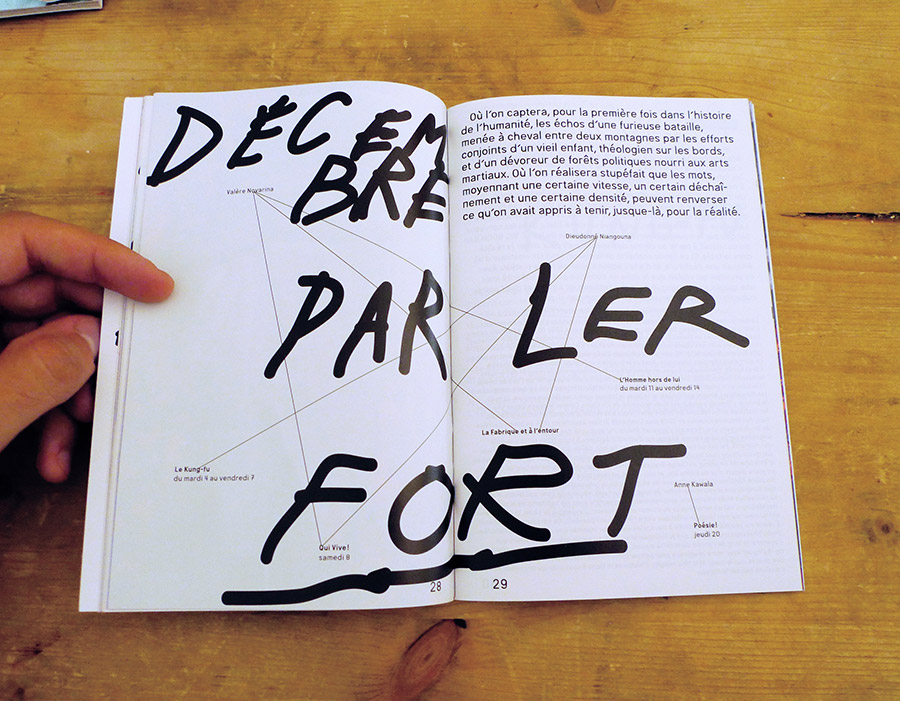 DÉCEM
BRE
PARLER
FORT
Valère Novarina
Le Kung-fu
du mardi 4 au vendredi 7
Qui Vive!
samedi 8
28
Où l'on captera, pour la première fois dans l'histoire
de l'humanité, les échos d'une furieuse bataille,
menée à cheval entre deux montagnes par les efforts
conjoints d'un vieil enfant, théologien sur les bords,
et d'un dévoreur de forêts politiques nourri aux arts
martiaux. Où l'on réalisera stupéfait que les mots,
moyennant une certaine vitesse, un certain déchaî-
nement et une certaine densité, peuvent renverser
ce qu'on avait appris à tenir, jusque-là, pour la réalité.
Dieudonné Niangouna
L'Homme hors de lui
du mardi 11 au vendredi 14
La Fabrique et à l'entour
Anne Kawala
Poésie!
jeudi 20
29